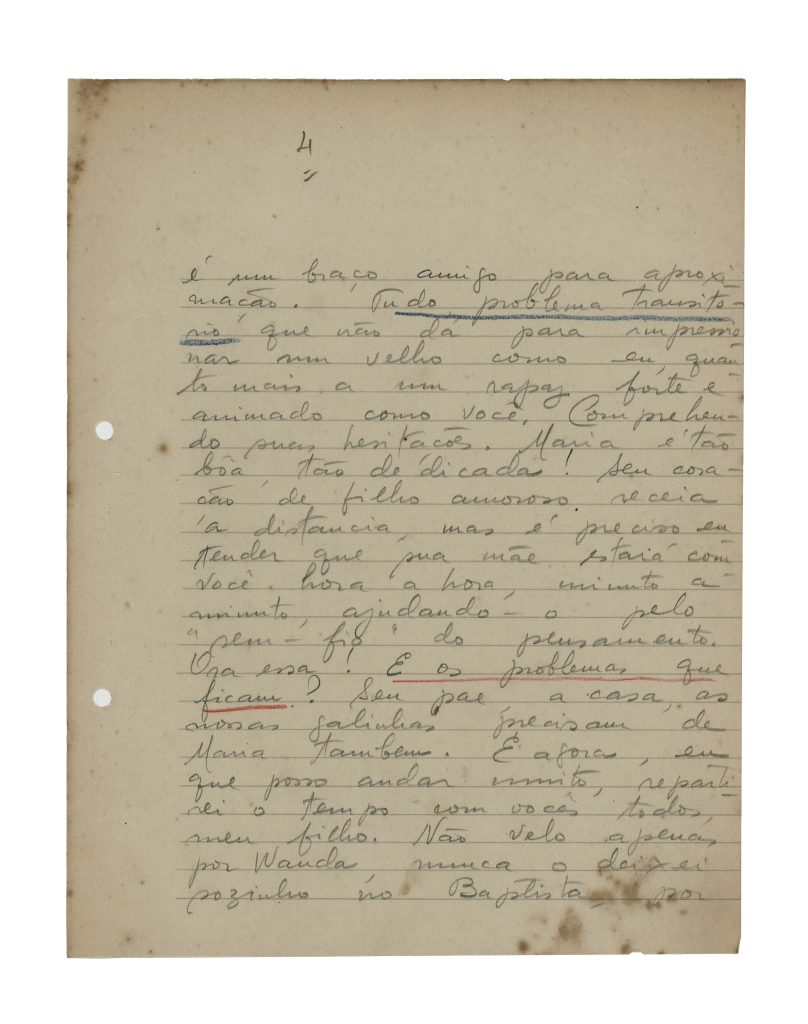 4
é um braço amigo para aproxi
mação. Tudo problema transitó-
rio, que não dá para impressio
nar um velho como eu, quan-
to mais a um rapaz forte e
animado como você. Comprehen-
do suas hesitações. Maria é tão
bôa, tão dedicada! Seu cora-
ção de filho amoroso receia
a distancia, mas é preciso en
tender que sua mãe estará com
você hora a hora, minuto a
minuto, ajudando-o pelo
"sem-fio" do pensamento.
Ora essa! E os problemas que
ficam? Seu pae a casa, as
nossas galinhas precisam de
Maria tambem. E agora, eu
que posso andar muito, reparti
rei o tempo com vocês todos,
meu filho. Não velo apenas
por Wanda nunca o deixei
sozinho no Baptista, por